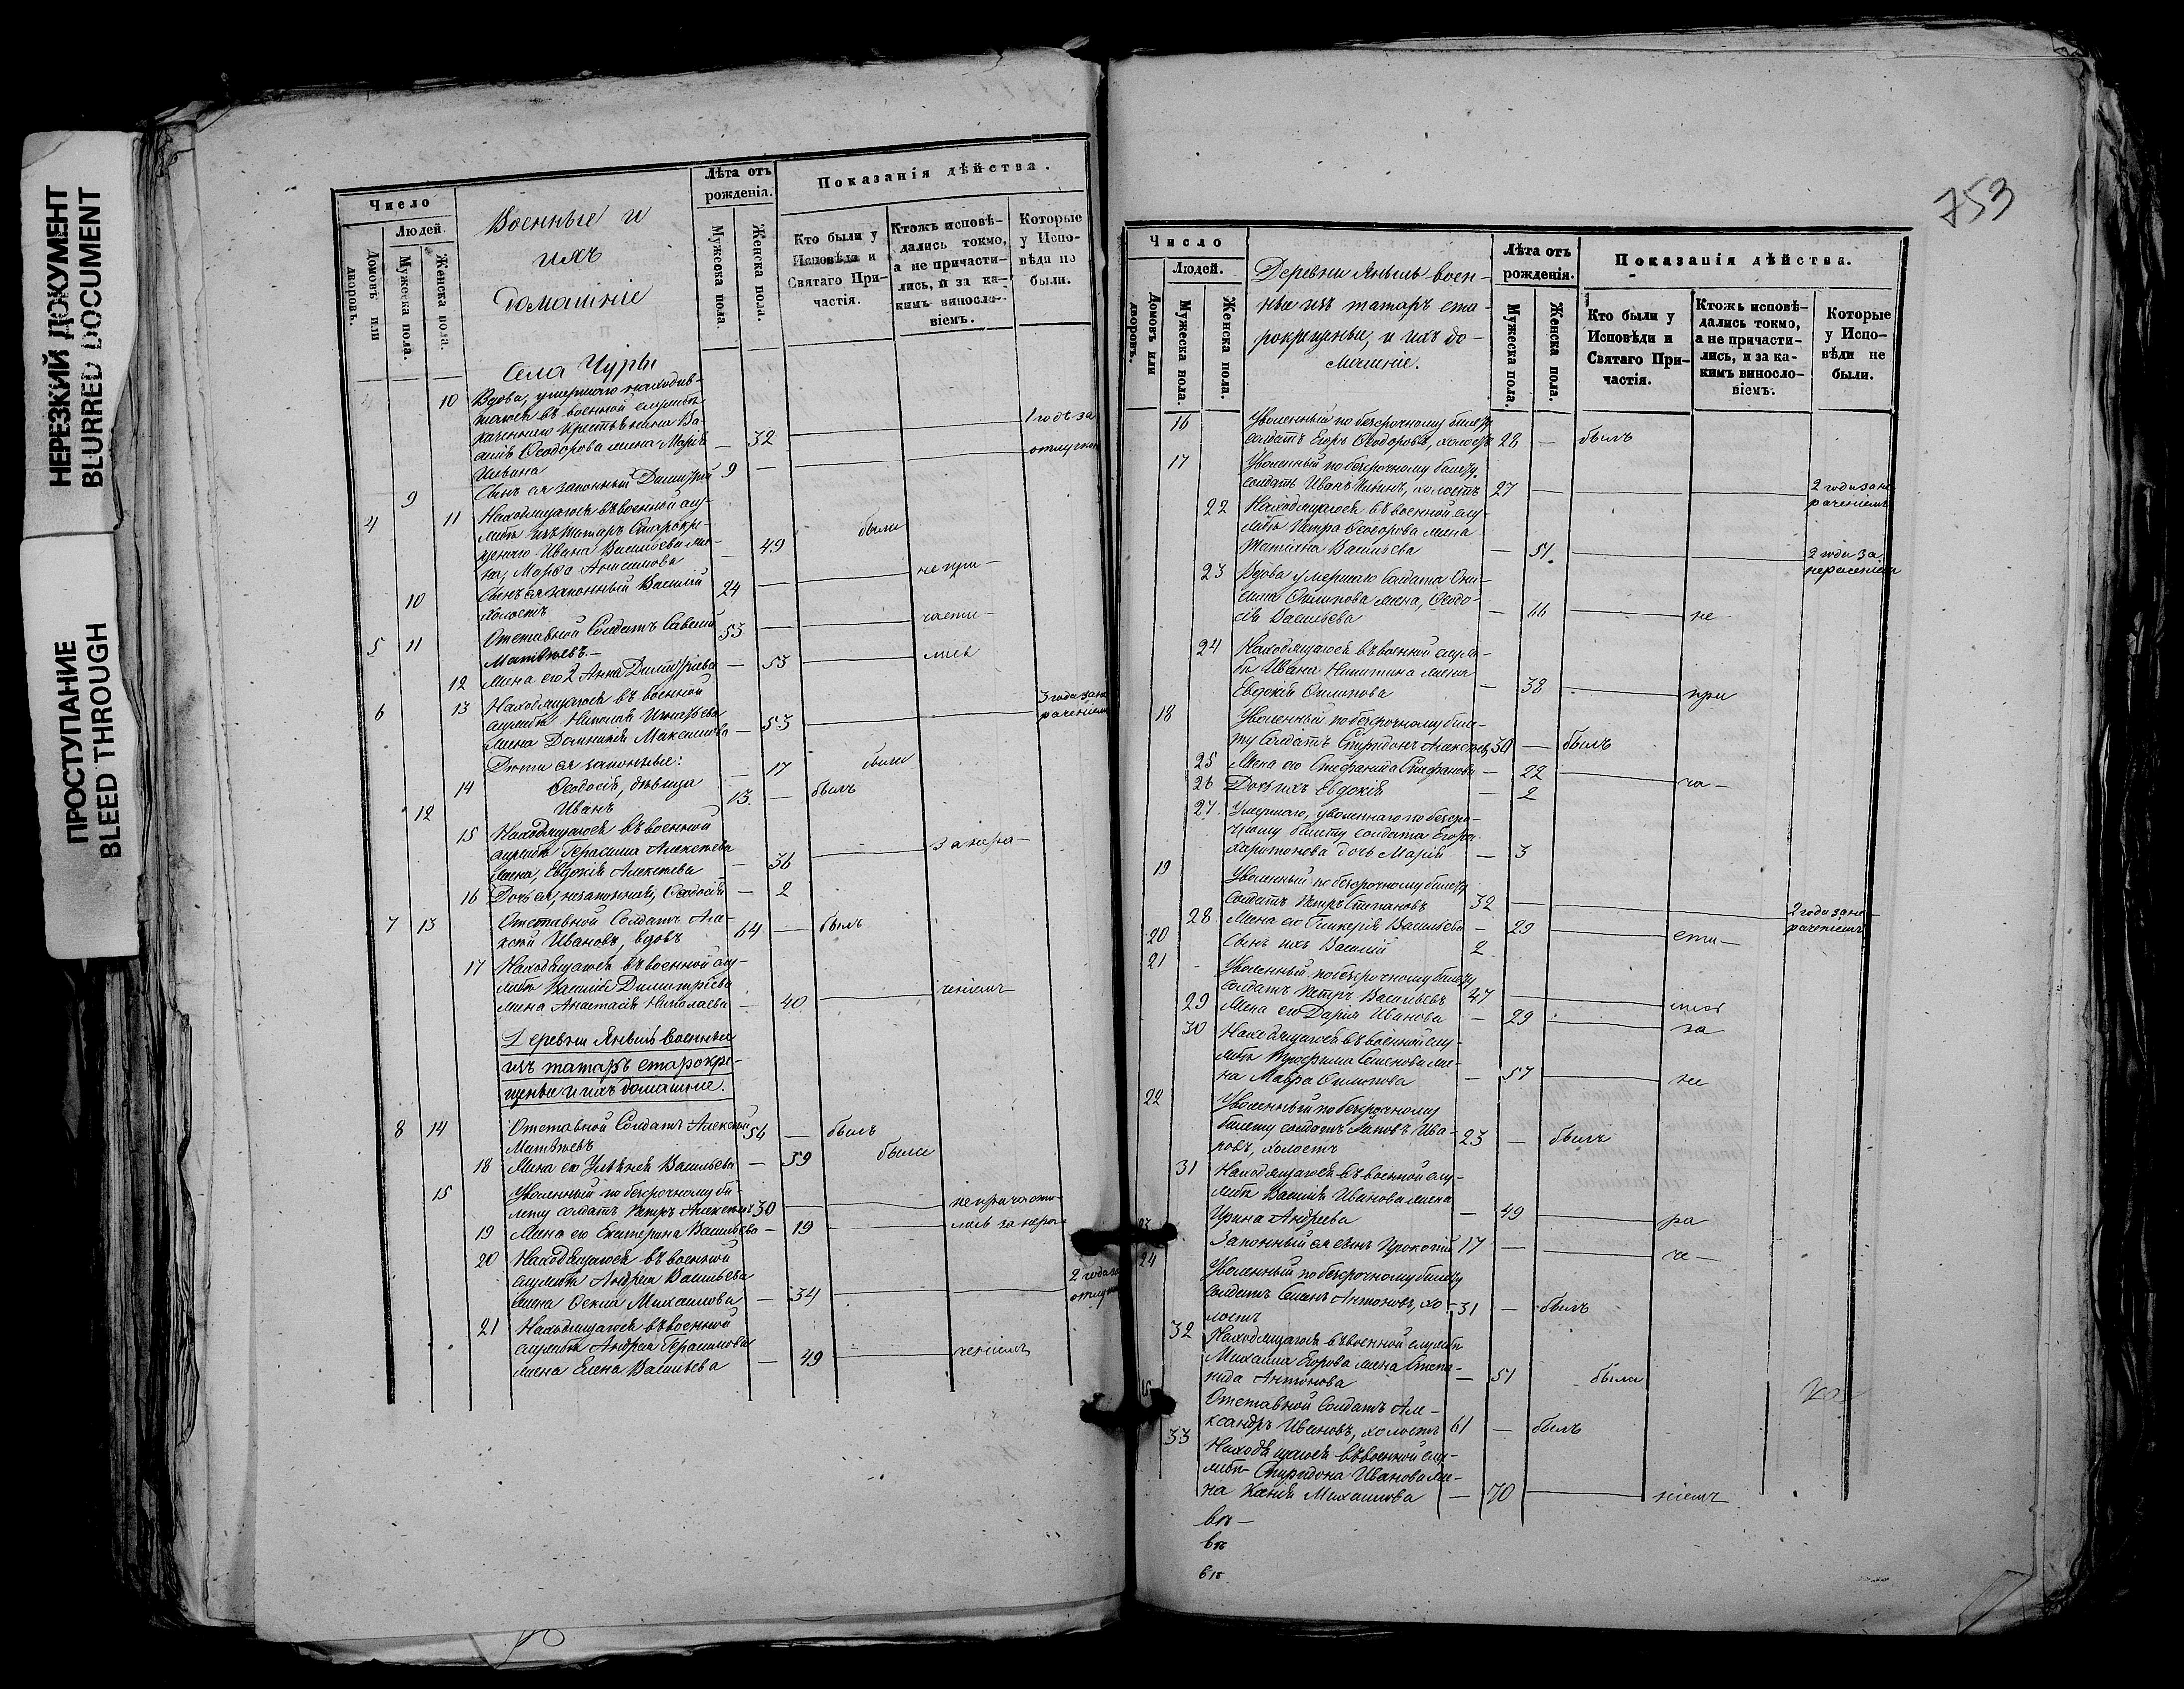 НЕРЕЗКИЙ ДОКУМЕНТ
BLURRED DOCUMENT
ПРОСТУПАНИЕ
BLEED THROUGH
Число
Людей.
Домовъ или дворовъ.
Мужеска пола.
Женска пола.
Военные и
ихъ
домашніе
Лѣта отъ рожденія.
Мужеска пола.
Женска пола.
Показанія дѣйства.
Кто были у Исповѣди и Святаго Причастія.
Ктожъ исповѣ-
дались токмо,
а не причасти-
лись, и за ка-
кимъ виносло-
віемъ.
Которые
у Испо-
вѣди не
были.
Села Чуры
10 Вдова, умершаго находив-
шагося въ военной службѣ
Ѳеодорова жена 32 1 годъ за
отлучкою
9 Сынъ ея законный Димитрій 9 —
4 11 Находящагося въ военной слу-
жбѣ изъ татаръ старокре-
щенаго Ивана Васильева же-
на, Марѳа Анисимова — 49 были
10 Сынъ ея законный Василій 24 — не при-
холостъ
5 11 Отставной Солдатъ Савелій 53 — части-
Матвѣевъ.—
12 Жена его 2 Анна Димитріева — 53 лись
6 13 Находящагося въ военной
службѣ Николая Игнатьева 3 года за не
жена Домникія Максимова — 53 раченіемъ
Дѣти ея законные:
14 Ѳеодосія, дѣвица — 17 были
12 Иванъ 13 — былъ
15 Находящагося въ военной
службѣ Герасима Алексѣева
жена, Евдокія Алексѣева — 36 за нера-
16 Дочь ея, незаконная, Ѳеодосія — 2
7 13 Отставной Солдатъ Але-
ксѣй Ивановъ, вдовъ 64 — былъ
17 Находящагося въ военной слу-
жбѣ Василія Димитріева
жена Анастасія Николаева — 40 ченіемъ
Деревни Янылъ военные
изъ татаръ старокре-
щеные и ихъ домашніе.
8 14 Отставной Солдатъ Алексѣй 54 — былъ
Матвѣевъ
18 Жена его Ульянія Васильева — 59 были
15 Уволенный по безсрочному би-
лету солдатъ Петръ Алексѣевъ 30 не причасти-
19 Жена его Екатерина Васильева — 19 лись за нера-
20 Находящагося въ военной
службѣ Андрея Васильева 2 года за
жена Ѳекла Михаилова — 34 отлуч
21 Находящагося въ военной
службѣ Андрея Герасимова
жена Елена Васильева — 49 ченіемъ
753
Число
Людей.
Домовъ или дворовъ.
Мужеска пола.
Женска пола.
Деревни Янылъ воен-
ные изъ татаръ ста-
рокрещеные, и ихъ до-
машніе.
Лѣта отъ рожденія.
Мужеска пола.
Женска пола.
Показанія дѣйства.
Кто были у Исповѣди и Святаго Причастія.
Ктожъ исповѣ-
дались токмо,
а не причасти-
лись, и за ка-
кимъ виносло-
віемъ.
Которые
у Испо-
вѣди не
были.
16 Уволенный по безсрочному билету
солдатъ Егоръ Ѳеодоровъ, холостъ 28 — былъ
17 Уволенный по безсрочному билету
солдатъ Иванъ Ильинъ, холостъ 27 — 2 года за не
раченіемъ
22 Находящагося въ военной слу-
жбѣ Петра Ѳеодорова жена
Татіана Васильева — 51. 2 года за
нераченіемъ
23 Вдова умершаго Солдата Они-
сима Филипова жена, Ѳеодо-
сія Васильева — 66 не
24 Находящагося въ военной служ-
бѣ Ивана Никитина жена
Евдокія Филипова — 38 при
18 Уволенный по безсрочному биле-
ту Солдатъ Спиридонъ Алексѣевъ 30 — былъ
25 Жена его Стефанида Стефанова — 22 ча-
26 Дочь ихъ Евдокія — 2
27 Умершаго, уволеннаго по безсро-
чному билету солдата Егора
Харитонова дочь Марія — 3
19 Уволенный по безсрочному билету
Солдатъ Петръ Степановъ 32 — 2 года за не-
раченіемъ
28 Жена его Гликерія Васильева — 29 сти-
20 Сынъ ихъ Василій 2
21 Уволенный по безсрочному билету
Солдатъ Петръ Васильевъ 47 лись
29 Жена его Дарія Иванова — 29 за
30 Находящагося въ военной слу-
жбѣ Трофима Семенова же-
на Мавра Филипова — 57 не
22 Уволенный по безсрочному
билету солдатъ Яковъ Ива- 23 — былъ
новъ, холостъ
31 Находящагося въ военной слу-
жбѣ Василія Иванова жена
Ирина Андреева — 49 ра
23 Законный ея сынъ Прокопій 17 — че-
24 Уволенный по безсрочному билету
Солдатъ Семенъ Антоновъ, хо- 31 — былъ
лостъ
32 Находящагося въ военной службѣ
Михаила Егорова жена Степа-
нида Антонова — 51 была
25 Отставной Солдатъ Але-
ксандръ Ивановъ, холостъ 61 — былъ
33 Находящагося въ военной слу-
жбѣ Спиридона Иванова же-
на Ксенія Михаилова — 70 ніемъ
въ —
въ
въ